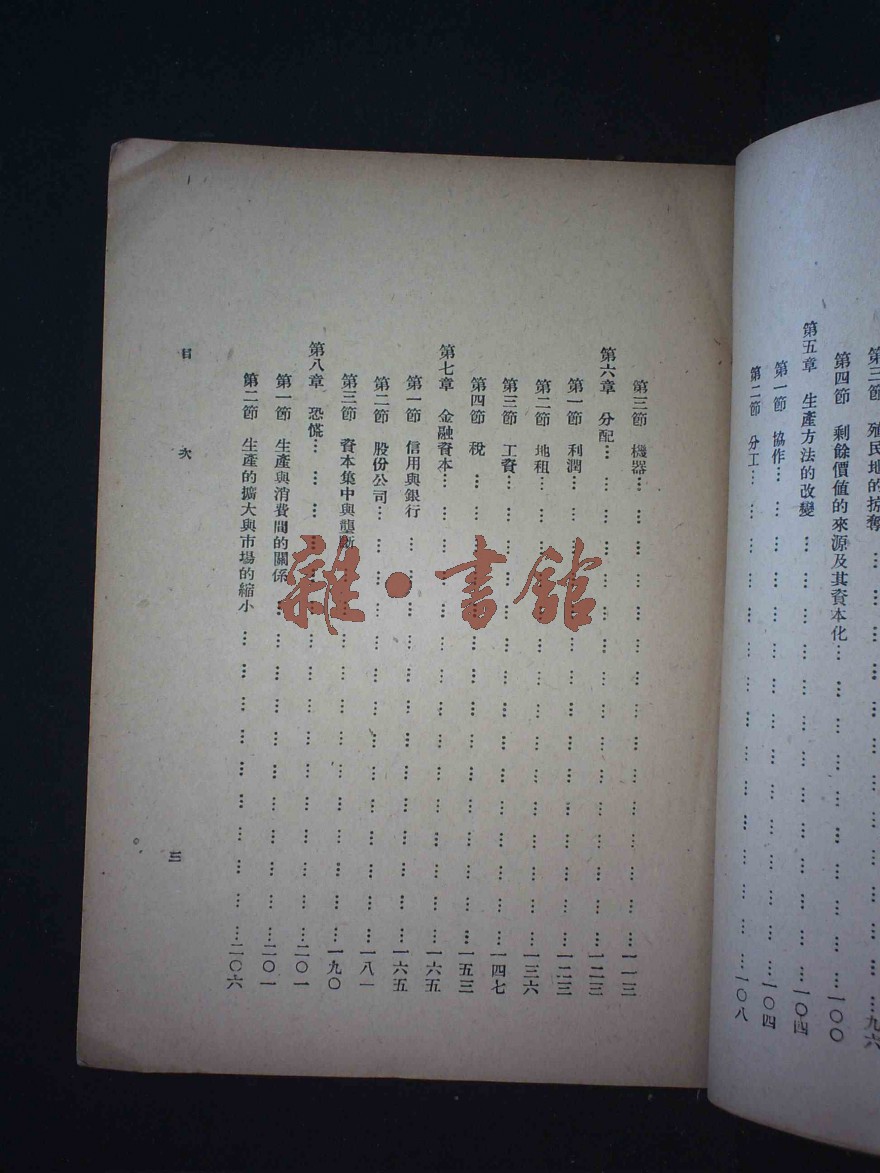 第三節 殖民地的掠奪……九六
第四節 剩餘價值的來源及其資本化……一〇〇
第五章 生產方法的改變……一〇四
第一節 協作……一〇四
第二節 分工……一〇八
第三節 機器……一一三
第六章 分配……一二三
第一節 利潤……一二三
第二節 地租……一三六
第三節 工資……一四七
第四節 稅……一五三
第七章 金融資本……一六五
第一節 信用與銀行……一六五
第二節 股份公司……一八一
第三節 資本集中與壟斷……一九〇
第八章 恐慌……二〇一
第一節 生產與消費間的關係……二〇一
第二節 生產的擴大與市場的縮小……二〇六
目 次
三
雜·書館